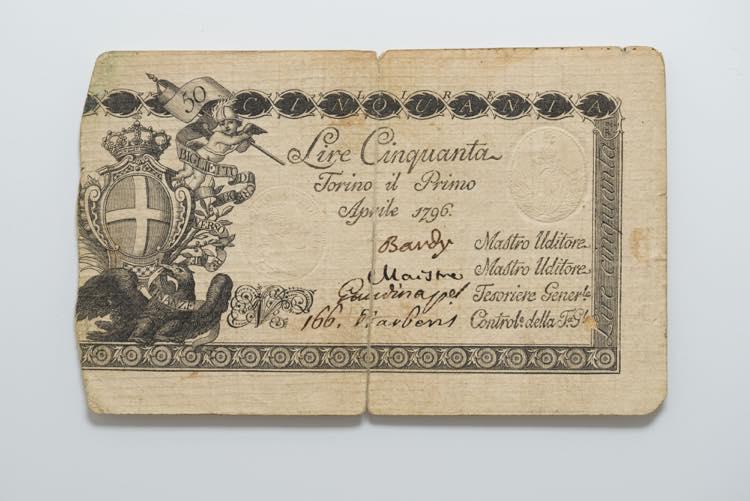 50
CINQUANTA
BIGLIETTO DI CREDITO VERSO
FINANZE
Lire Cinquanta
Torino il Primo
Aprile 1796.
Mastro Uditore
Mastro Uditore
Tesoriere Gener.le
166.
Control.e della T.a G.le
Lire cinquanta